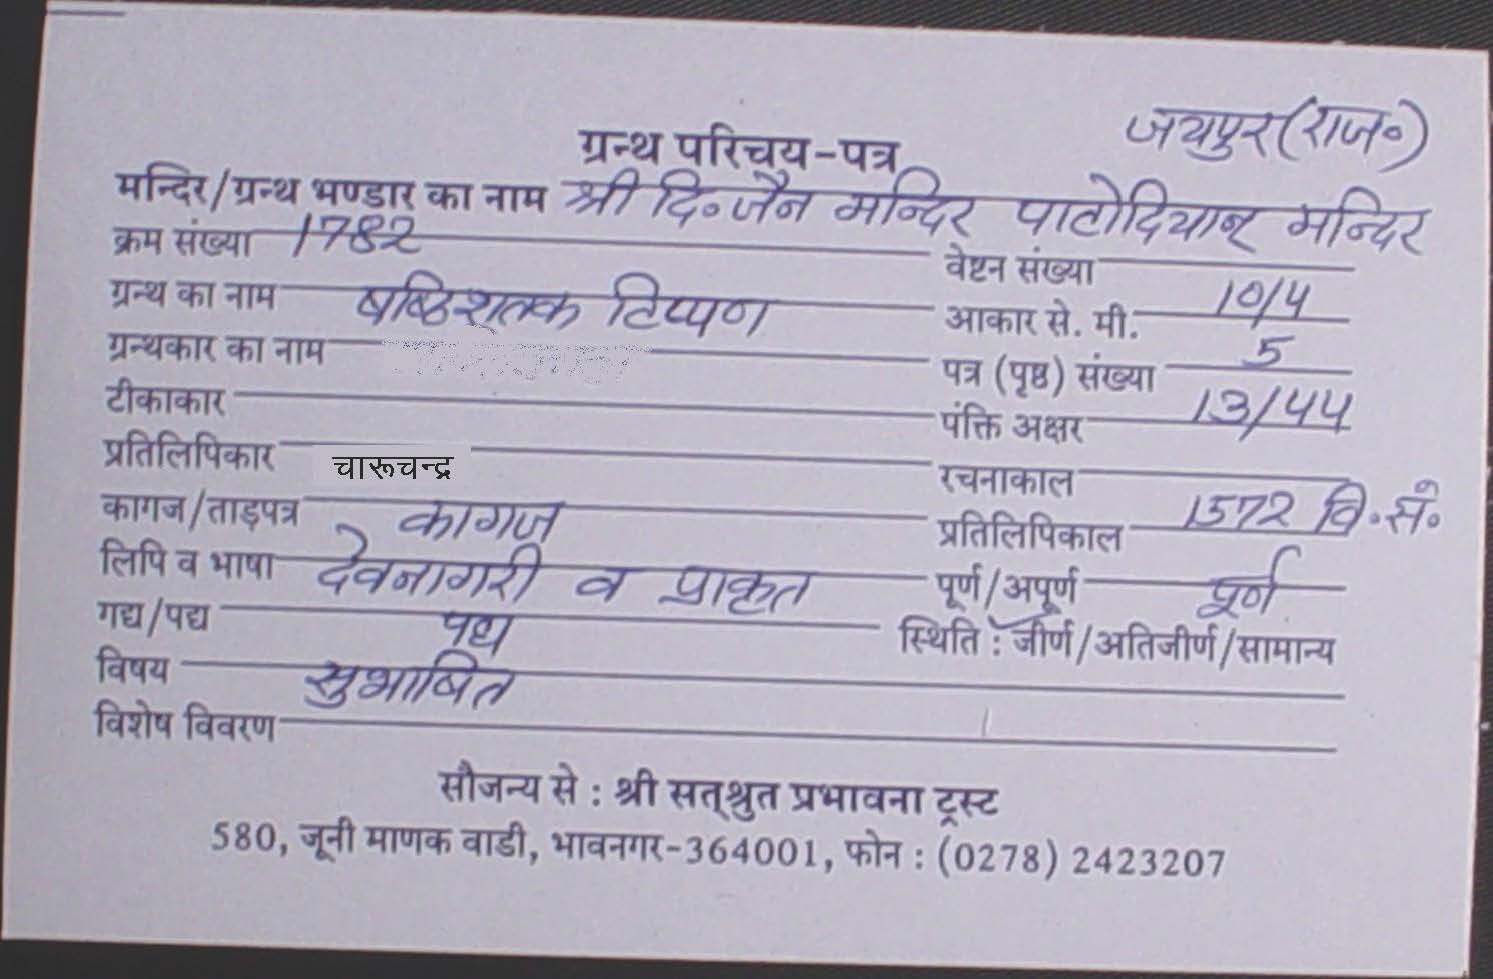 जयपुर (राज॰)
ग्रन्थ परिचय-पत्र
मन्दिर/ग्रन्थ भण्डार का नाम श्री दि॰ जैन मन्दिर पाटोदियान् मन्दिर
क्रम संख्या 1782
वेष्टन संख्या
ग्रन्थ का नाम षष्ठिशतक टिप्पण
आकार से. मी. 10/4
ग्रन्थकार का नाम
पत्र (पृष्ठ) संख्या 5
टीकाकार
पंक्ति अक्षर 13/44
प्रतिलिपिकार चारूचन्द्र
रचनाकाल
कागज/ताड़पत्र कागज
प्रतिलिपिकाल 1572 वि॰ सं॰
लिपि व भाषा देवनागरी व प्राकृत
पूर्ण/अपूर्ण पूर्ण
गद्य/पद्य पद्य
स्थिति : जीर्ण/अतिजीर्ण/सामान्य
विषय सुभाषित
विशेष विवरण
सौजन्य से : श्री सत्श्रुत प्रभावना ट्रस्ट
580, जूनी माणक वाडी, भावनगर-364001, फोन : (0278) 2423207